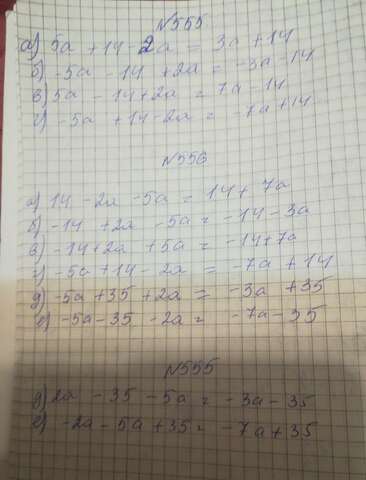 N555
а) 5a + 14 - 2a = 3a + 14
б) -5a - 14 + 2a = -3a - 14
в) 5a - 14 + 2a = 7a - 14
г) -5a + 14 - 2a = -7a + 14
N556
а) 14 - 2a - 5a = 14 + 7a
б) -14 + 2a - 5a = -14 - 3a
в) -14 + 2a + 5a = -14 + 7a
г) -5a + 14 - 2a = -7a + 14
д) -5a + 35 + 2a = -3a + 35
е) -5a - 35 - 2a = -7a - 35
N555
д) 2a - 35 - 5a = -3a - 35
е) -2a - 5a + 35 = -7a + 35